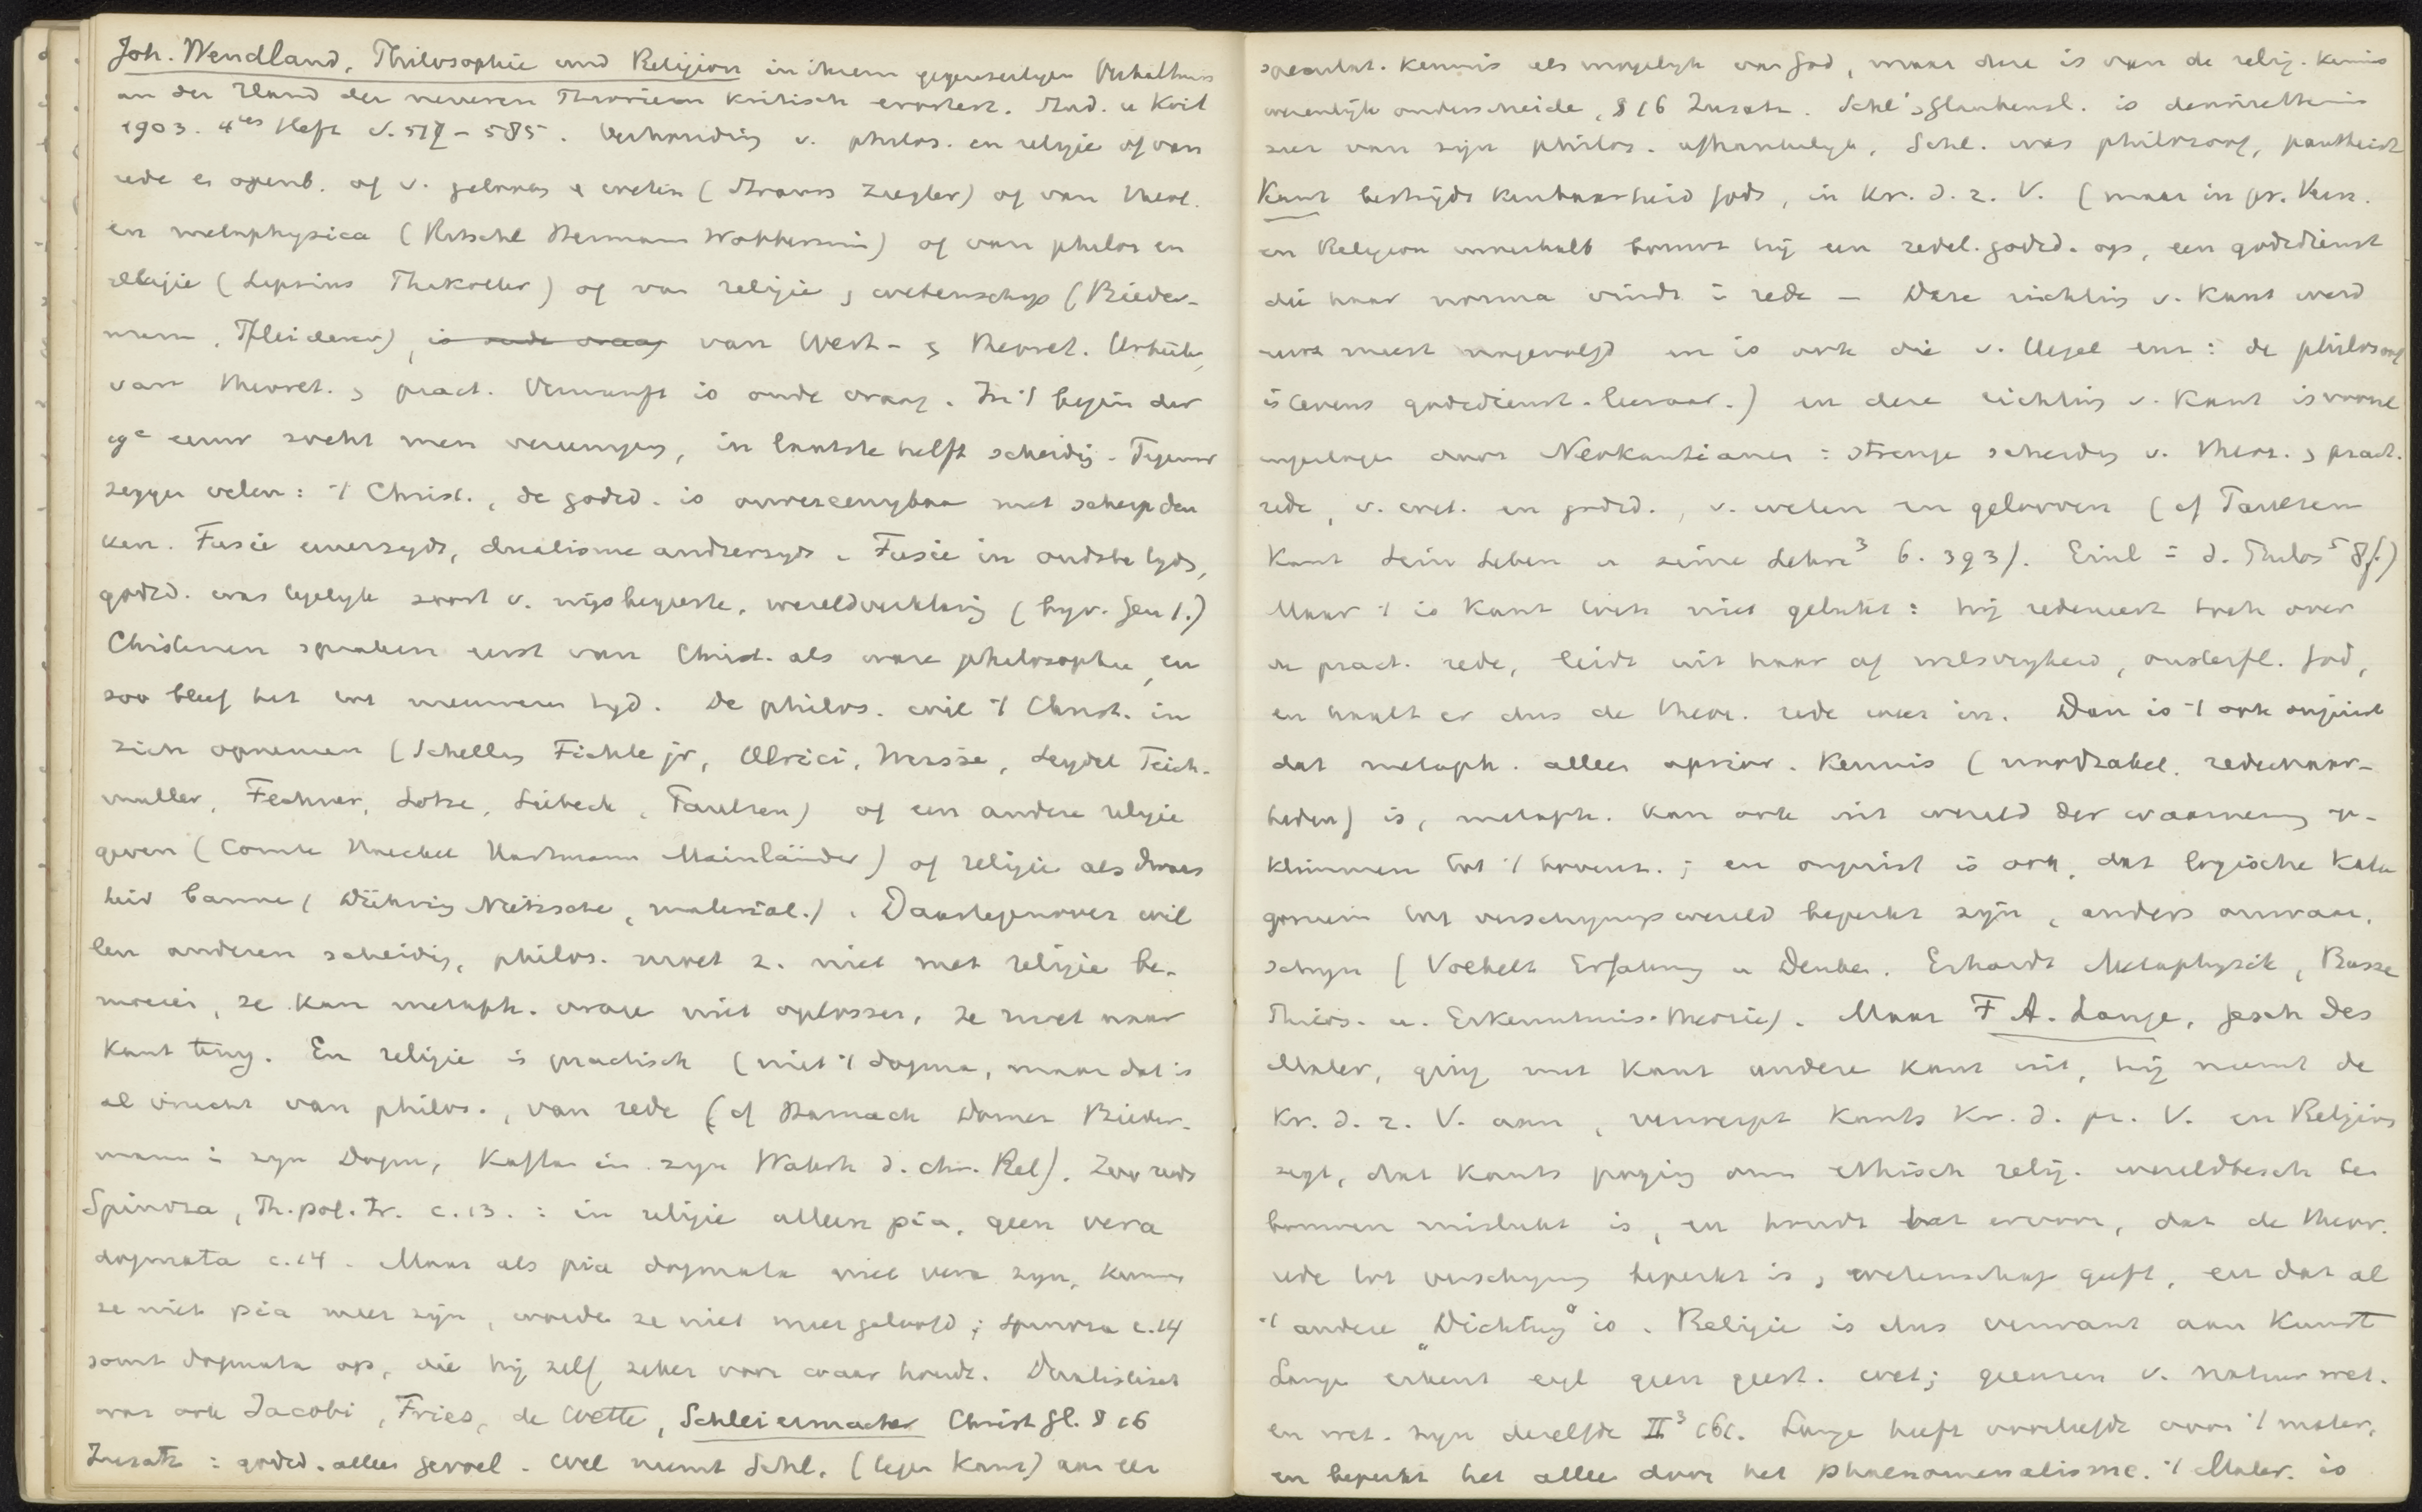 Joh. Wendland, Philosophie und Religion in ihrem gegenseitigen Verhältnis
an der Hand der neueren Theorieen kritisch erörtert. Stud. u Krit
1903. 4tes Heft S. 517-585. Verhouding v. philos. en religie of van
rede en openb. of v. geloof & weten (Strauss Ziegler) of van theol.
en metaphysica (Ritschl Hermann Wobbermin) of van philos en
religie (Lepsius Thikötter) of van religie & wetenschap (Bieder-
mann, Pfleiderer), is oude vraag van Wert- & theoret. Urteile,
van theoret. & pract. Vernunft is oude vraag. In 't begin der
19e eeuw zocht men vereeniging, in laatste helft scheidig. Tegenw
zeggen velen: 't Christ., de godsd. is onvereenigbaar met scherp den
ken. Fusie eenerzyds, dualisme anderzyds. Fusie in oudste tyds,
godsd. was tegelyk soort v. wijsbegeerte, wereldverklaring (bijv. Gen 1.)
Christenen spraken eerst van Christ. als ware philosophie, en
zoo bleef het tot nieuwere tyd. De philos. wil 't Christ. in
zich opnemen (Schelling Fichte jr, Ulrici, Weisse, Seydel Teich-
muller, Fechner, Lotze, Lübeck, Paulsen) of een andere religie
geven (Comte Haeckel Hartmann Mainländer) of religie als dwaas
heid bannen (Dühring Nietzsche, material.). Daartegenover wil
len anderen scheidig, philos. moet z. niet met religie be-
moeien, ze kan metaph. vrage niet oplossen, ze moet naar
Kant terug. En religie is practisch (niet 't dogma, maar dat is
al vrucht van philos., van rede (cf Harnack Dorner Bieder-
mann in zyn Dogm, Kaftan in zyn Wahrh d. chr. Rel). Zoo reeds
Spinoza, Th. pol. tr. c. 13.: in religie alleen pia, geen vera
dogmata c. 14. Maar als pia dogmata niet vera zyn, kunnen
ze niet pia meer zijn, worde ze niet meer geloofd; Spinoza c. 14
somt dogmata op, die hij zelf zeker voor waar houdt. Dualistisch
was ook Jacobi, Fries, de Wette, Schleiermacher Christ Gl. § 16
Zusatz: godsd. alleen gevoel. Wel neemt Schl. (tegen Kant) aan een
speculat. kennis als mogelijk van God, maar deze is van de relig. kennis
wezenlijk onderscheide, § 16 Zusatz. Schl's Glaubensl. is desniettemin
zeer van zijn philos. afhankelijk, Schl. was philosoof, pantheist
Kant bestrijdt kenbaarheid Gods, in Kr. d. r. V. (maar in pr. Vern.
en Religion innerhalb bouwt hij een redel. godsd. op, een godsdienst
die haar norma vindt in rede - Deze richting v. Kant werd
eerst meest nagevolgd en is ook die v. Hegel enz: de philosoof
is tevens godsdienst-leeraar.) en deze richting v. Kant is vooral
ingeslagen door Neokantianer: strenge scheiding v. theor. & pract.
rede, v. wet. en godsd., v. weten en gelooven (cf Paulsen
Kant Sein Leben u seine Lehre³ 6. 393). Einl in d. Philos⁵ 8f.)
Maar 't is Kant toch niet gelukt: hij redeneert toch over
de pract. rede, leidt uit haar af wilsvryheid, onsterfl. God,
en haalt er dus de theor. rede weer in. Dan is 't ook onjuist
dat metaph. alleen aprior. kennis (noodzakel. redewaar-
heden) is, metaph. kan ook uit wereld der waarneming op-
klimmen tot 't bovenz.; en onjuist is ook, dat logische kate
gorieën tot verschyningswereld beperkt zyn, anders onwaar,
schyn (Volkelt Erfahrung u Denken. Erhardt Metaphysik, Busse
Philos. u. Erkenntnis-theorie). Maar F A. Lange, Gesch des
Mater, ging met Kant andere kant uit, hij neemt de
Kr. d. r. V. aan, verwerpt Kants Kr. d. pr. V. en Religion
zegt, dat Kants poging om ethisch relig. wereldbesch te
bouwen mislukt is, en houdt het ervoor, dat de theor.
rede tot verschyning beperkt is, wetenschap geeft, en dat al
't andere „Dichtung" is. Religie is dus verwant aan Kunst
Lange erkent eigl geen geest. wet; grenzen v. natuurwet.
en wet. zyn dezelfde II³ 161. Lange heeft voorliefde voor 't mater,
en beperkt het alleen door het phaenomenalisme. 't Mater. is